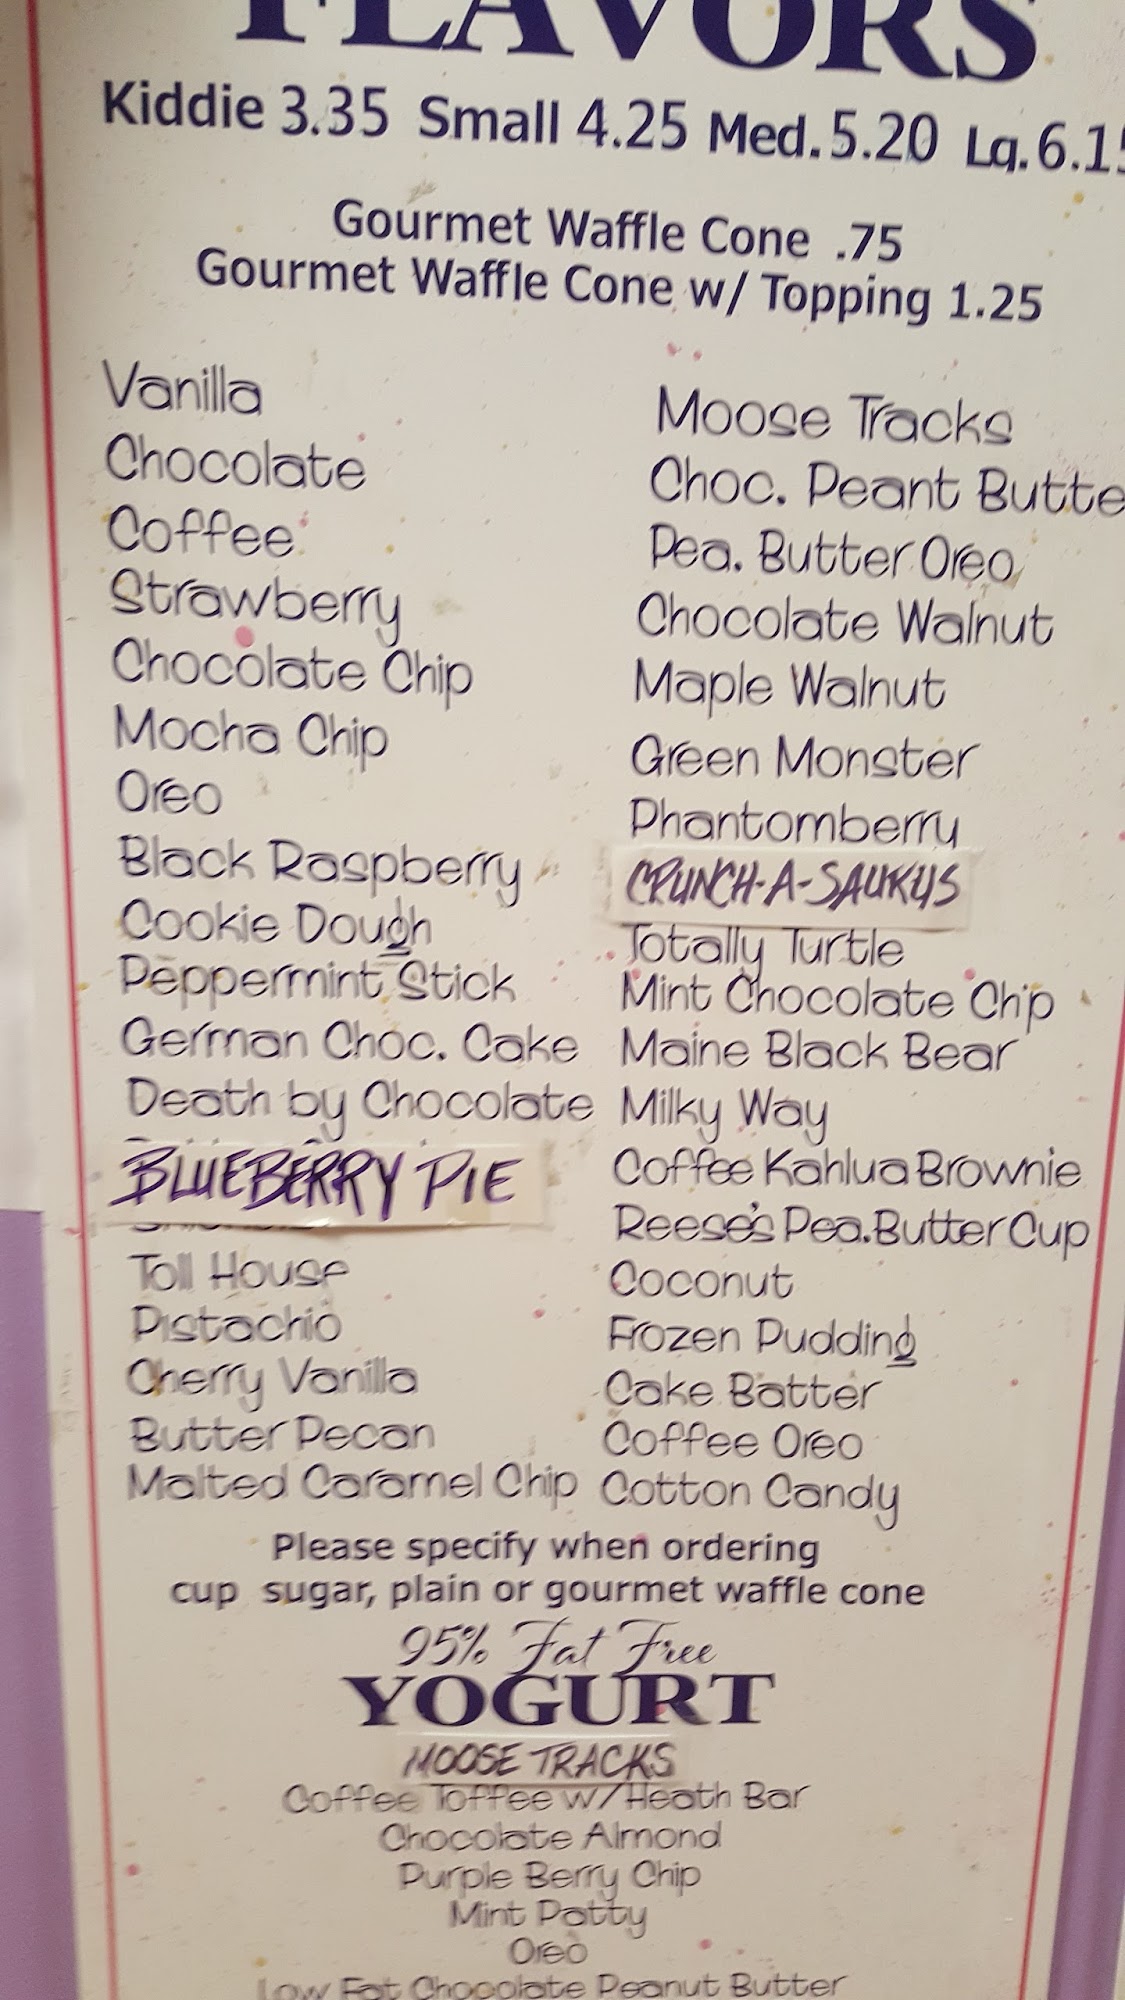 FLAVORS
Kiddie 3.35 Small 4.25 Med. 5.20 Lg. 6.15
Gourmet Waffle Cone .75
Gourmet Waffle Cone w/ Topping 1.25
Vanilla
Chocolate
Coffee
Strawberry
Chocolate Chip
Mocha Chip
Oreo
Black Raspberry
Cookie Dough
Peppermint Stick
German Choc. Cake
Death by Chocolate
BLUEBERRY PIE
Toll House
Pistachio
Cherry Vanilla
Butter Pecan
Malted Caramel Chip
Moose Tracks
Choc. Peant Butte
Pea. Butter Oreo
Chocolate Walnut
Maple Walnut
Green Monster
Phantomberry
CRUNCH-A-SAUKUS
Totally Turtle
Mint Chocolate Chip
Maine Black Bear
Milky Way
Coffee Kahlua Brownie
Reese's Pea. Butter Cup
Coconut
Frozen Pudding
Cake Batter
Coffee Oreo
Cotton Candy
Please specify when ordering
cup sugar, plain or gourmet waffle cone
95% Fat Free
YOGURT
MOOSE TRACKS
Coffee Toffee w/Heath Bar
Chocolate Almond
Purple Berry Chip
Mint Patty
Oreo
Low Fat Chocolate Peanut Butter